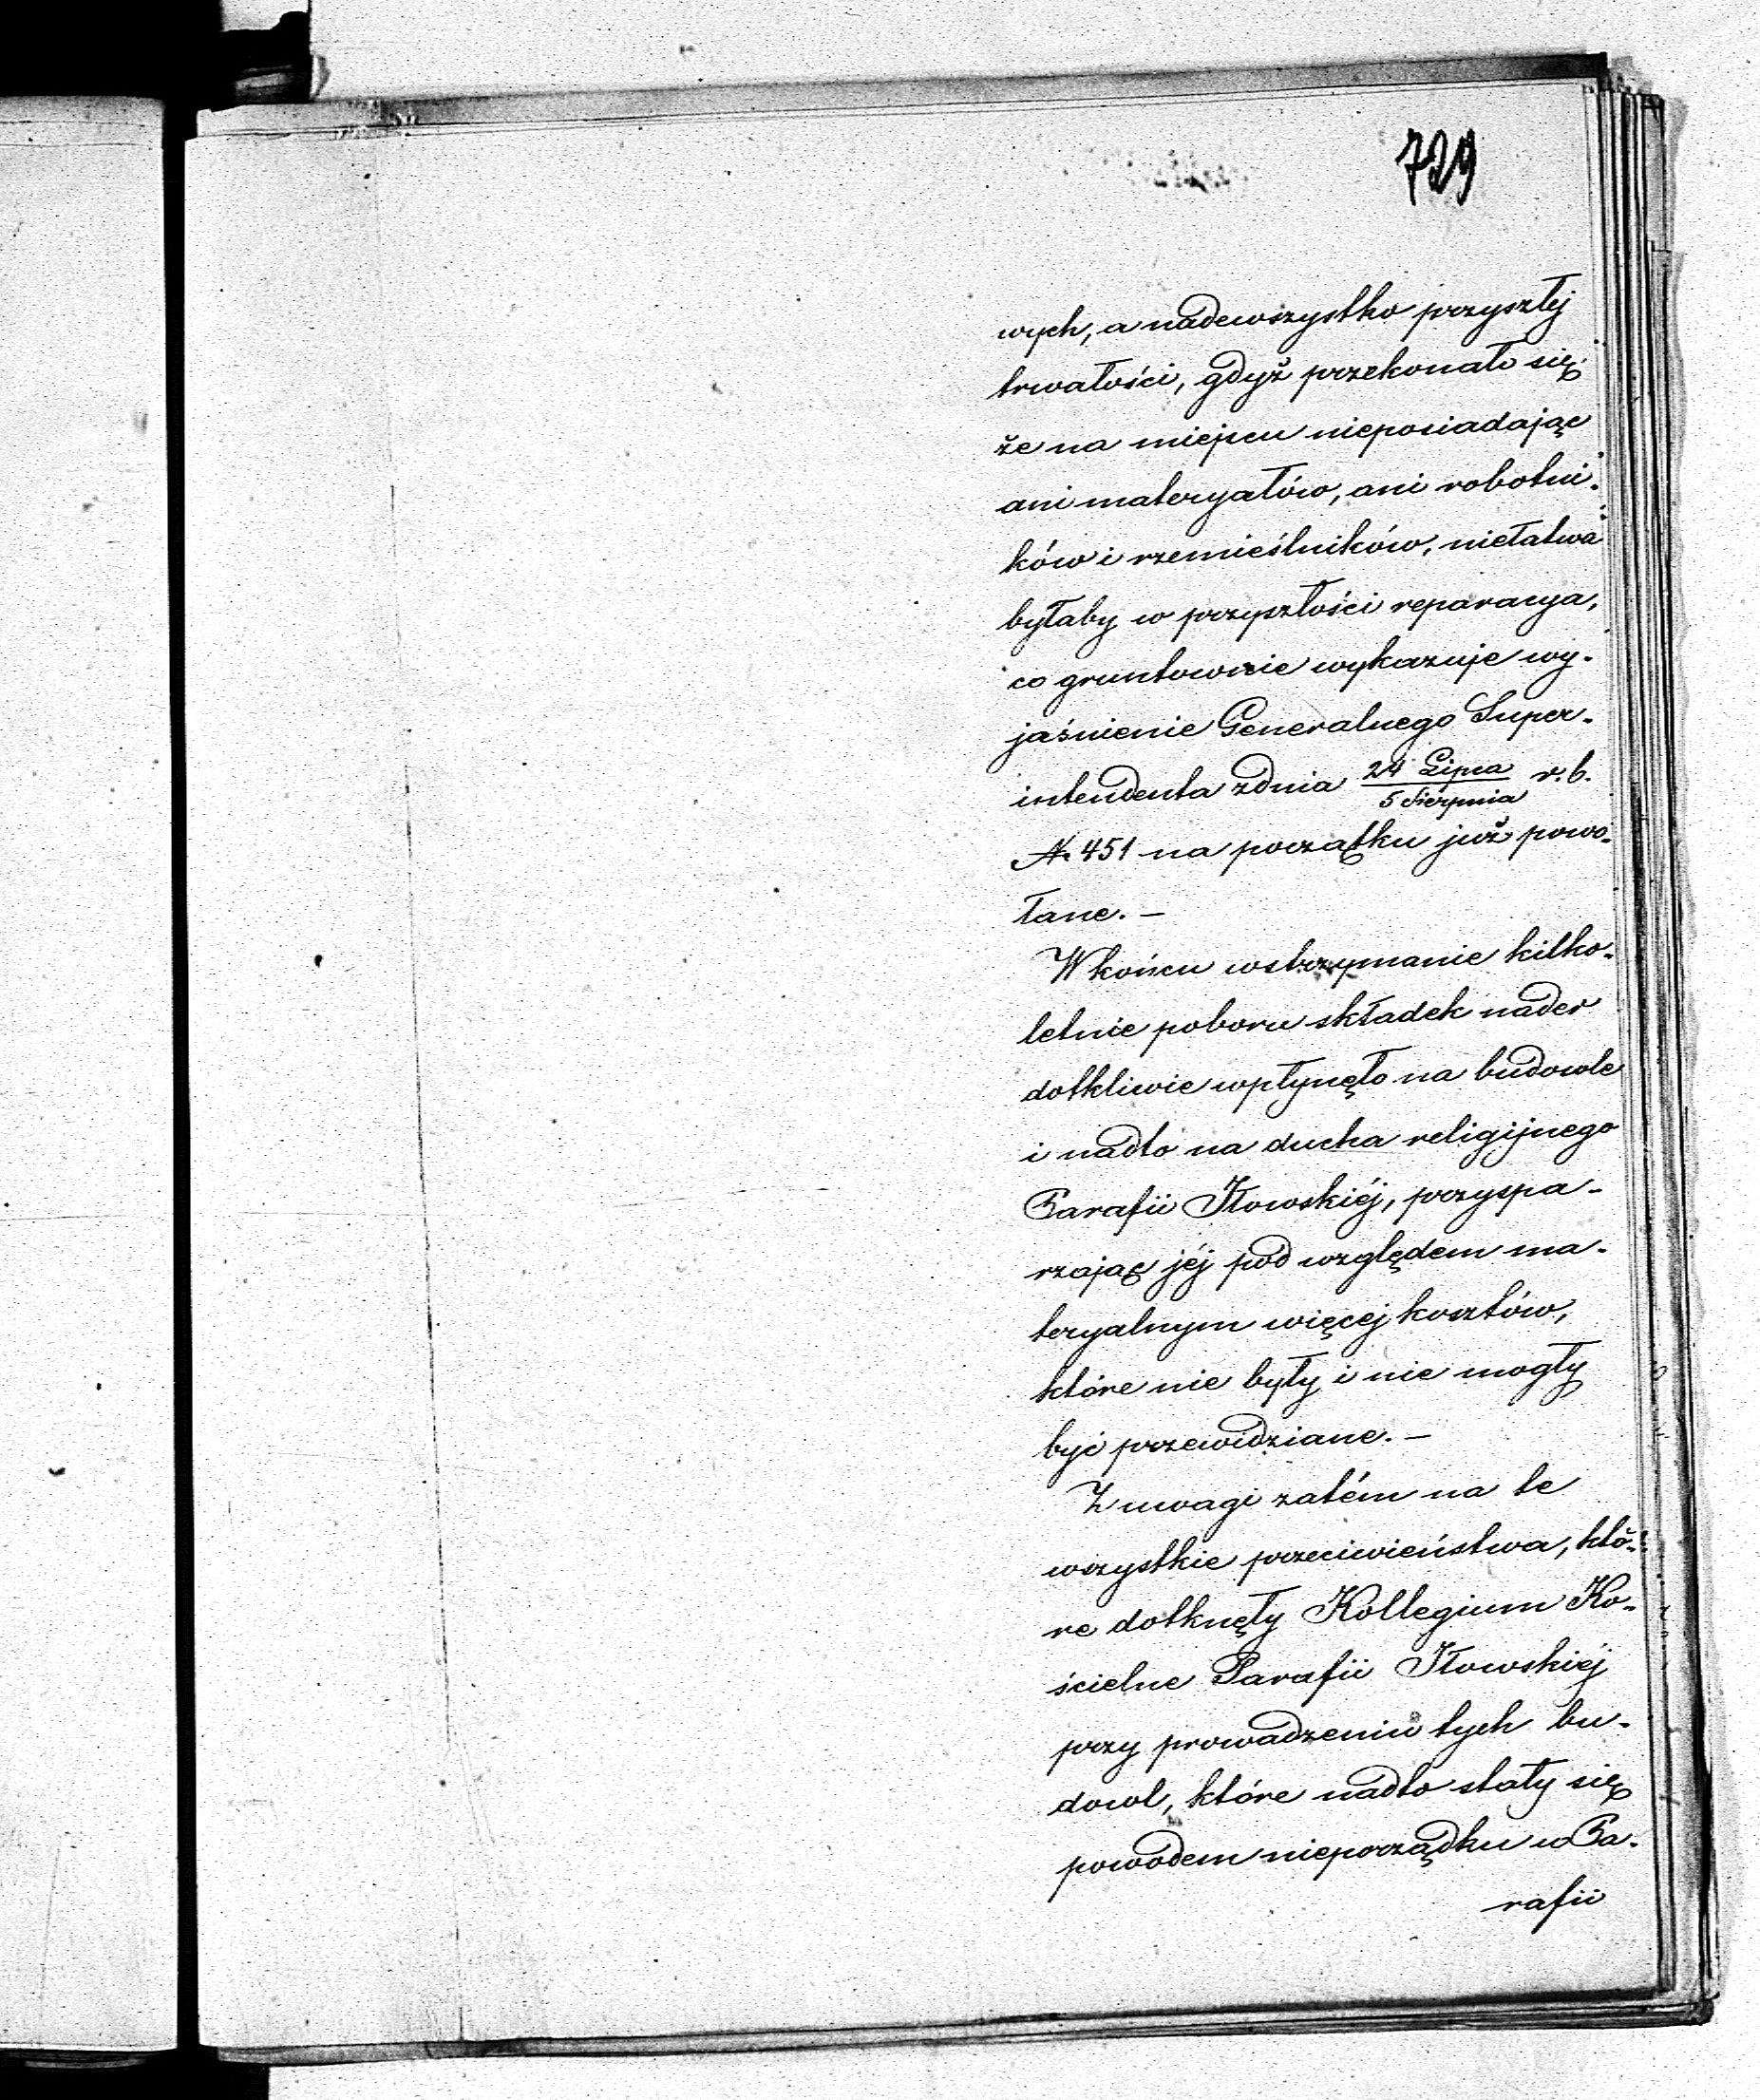 729
wych, a nadewszystko przyszłej
trwałości, gdyż przekonało się,
że na miejscu nieposiadając
ani materyałów, ani robotni-
ków i rzemieślników, niełatwa
byłaby w przyszłości reparacya,
co gruntownie wykazuje wy-
jaśnienie Generalnego Super-
intendenta z dnia 24 Lipca / 5 Sierpnia r.b.
№ 451 na początku już powo-
łane. —
W końcu wstrzymanie kilko-
letnie poboru składek nader
dotkliwie wpłynęło na budowle
i nadto na ducha religijnego
Parafii Iłowskiéj, przyspa-
rzając jéj pod względem ma-
teryalnym więcej kosztów,
które nie były i nie mogły
być przewidziane. —
Z uwagi zatém na te
wszystkie przeciwieństwa, któ-
re dotknęły Kollegium Ko-
ścielne Parafii Iłowskiéj
przy prowadzeniu tych bu-
dowl, które nadto stały się
powodem nieporządku w Pa-
rafii